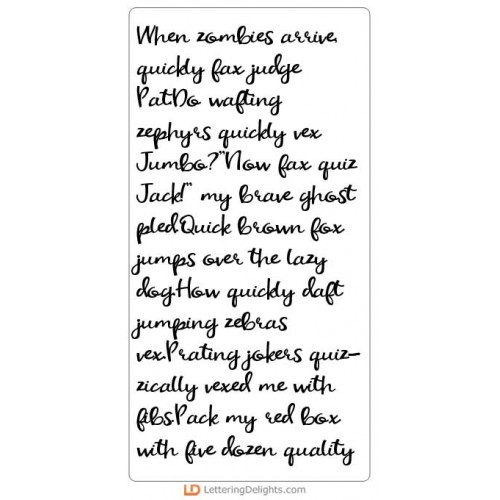 When zombies arrive,
quickly fax judge
Pat.Do wafting
zephyrs quickly vex
Jumbo?"Now fax quiz
Jack!" my brave ghost
pled.Quick brown fox
jumps over the lazy
dog.How quickly daft
jumping zebras
vex.Prating jokers quiz-
zically vexed me with
fibs.Pack my red box
with five dozen quality
LD LetteringDelights.com